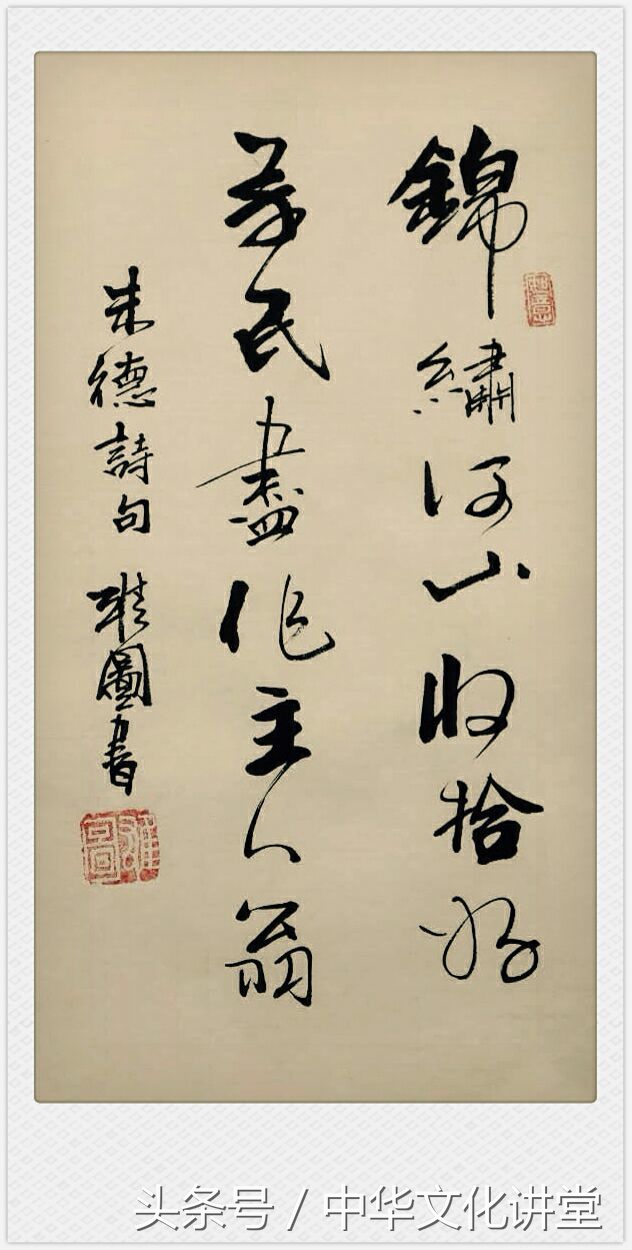 錦繡河山收拾好
萬民盡作主人翁
朱德詩句 雅圖書
头条号 / 中华文化讲堂